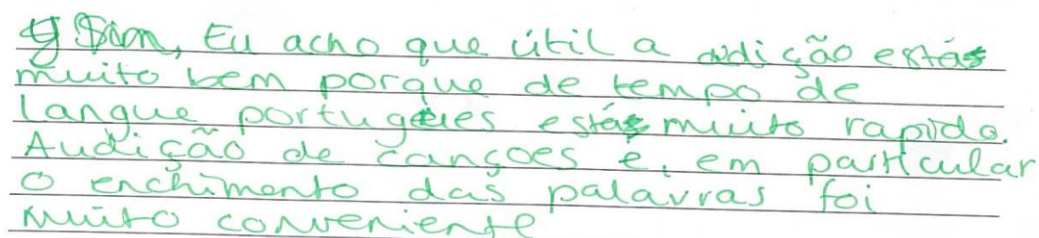 Sim, Eu acho que útil a audição está
muito bem porque de tempo de
langue portugues está muito rapido.
Audição de cançoes e, em particular
o enchimento das palavras foi
muito conveniente